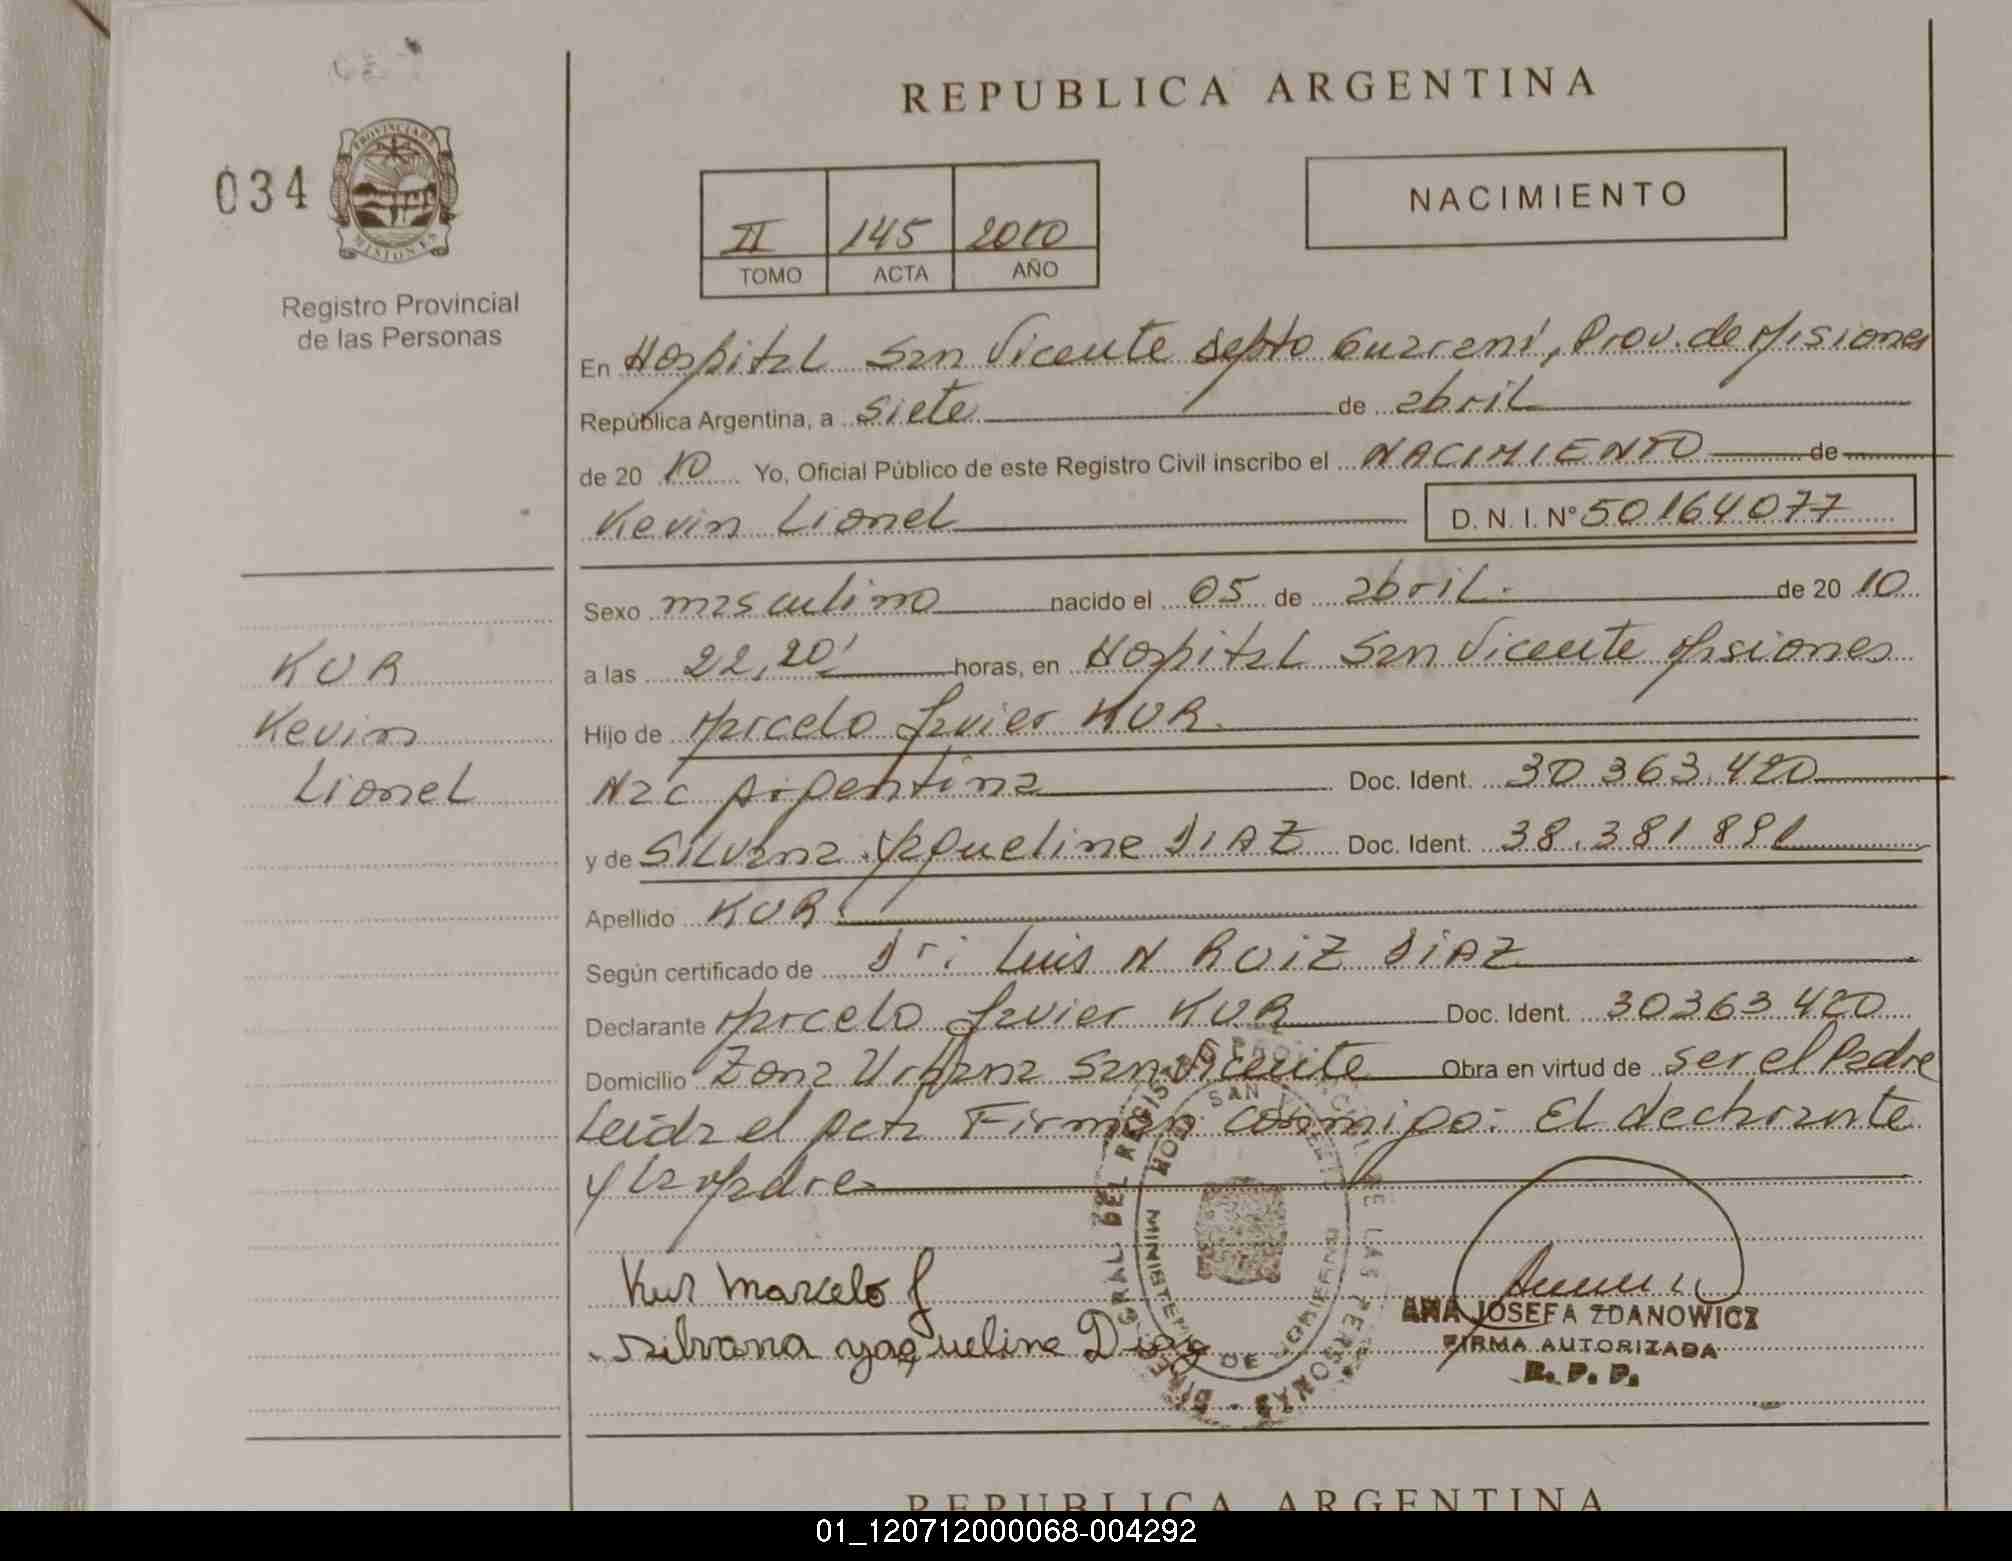 REPUBLICA ARGENTINA
034
PROVINCIA DE
MISIONES
Registro Provincial
de las Personas
NACIMIENTO
II 145 2010
TOMO ACTA AÑO
En Hospital San Vicente depto Guarani, Prov. de Misiones
República Argentina, a siete de abril
de 20 10 Yo, Oficial Público de este Registro Civil inscribo el NACIMIENTO de
Kevin Lionel D. N. I. N° 50164077
Sexo masculino nacido el 05 de abril. de 20 10
a las 22,20' horas, en Hospital San Vicente Misiones
Hijo de Marcelo Javier KUR
Nac Argentina Doc. Ident. 30 363.420
y de Silvana Yaqueline DIAZ Doc. Ident. 38.381 891
Apellido KUR.
Según certificado de Dr: Luis N RUIZ DIAZ
Declarante Marcelo Javier KUR Doc. Ident. 30363 420
Domicilio Zona Urbana San Vicente Obra en virtud de ser el Padre
Leida el Acta Firman conmigo: El declarante
y la Madre
KUR
Kevin
Lionel
Kur Marcelo J
Silvana yaqueline Diaz
SAN VICENTE
MINISTERIO DE GOBIERNO
GRAL. DEL REGISTRO DE LAS PERSONAS
ANA JOSEFA ZDANOWICZ
FIRMA AUTORIZADA
R. P. P.
REPUBLICA ARGENTINA
01_120712000068-004292